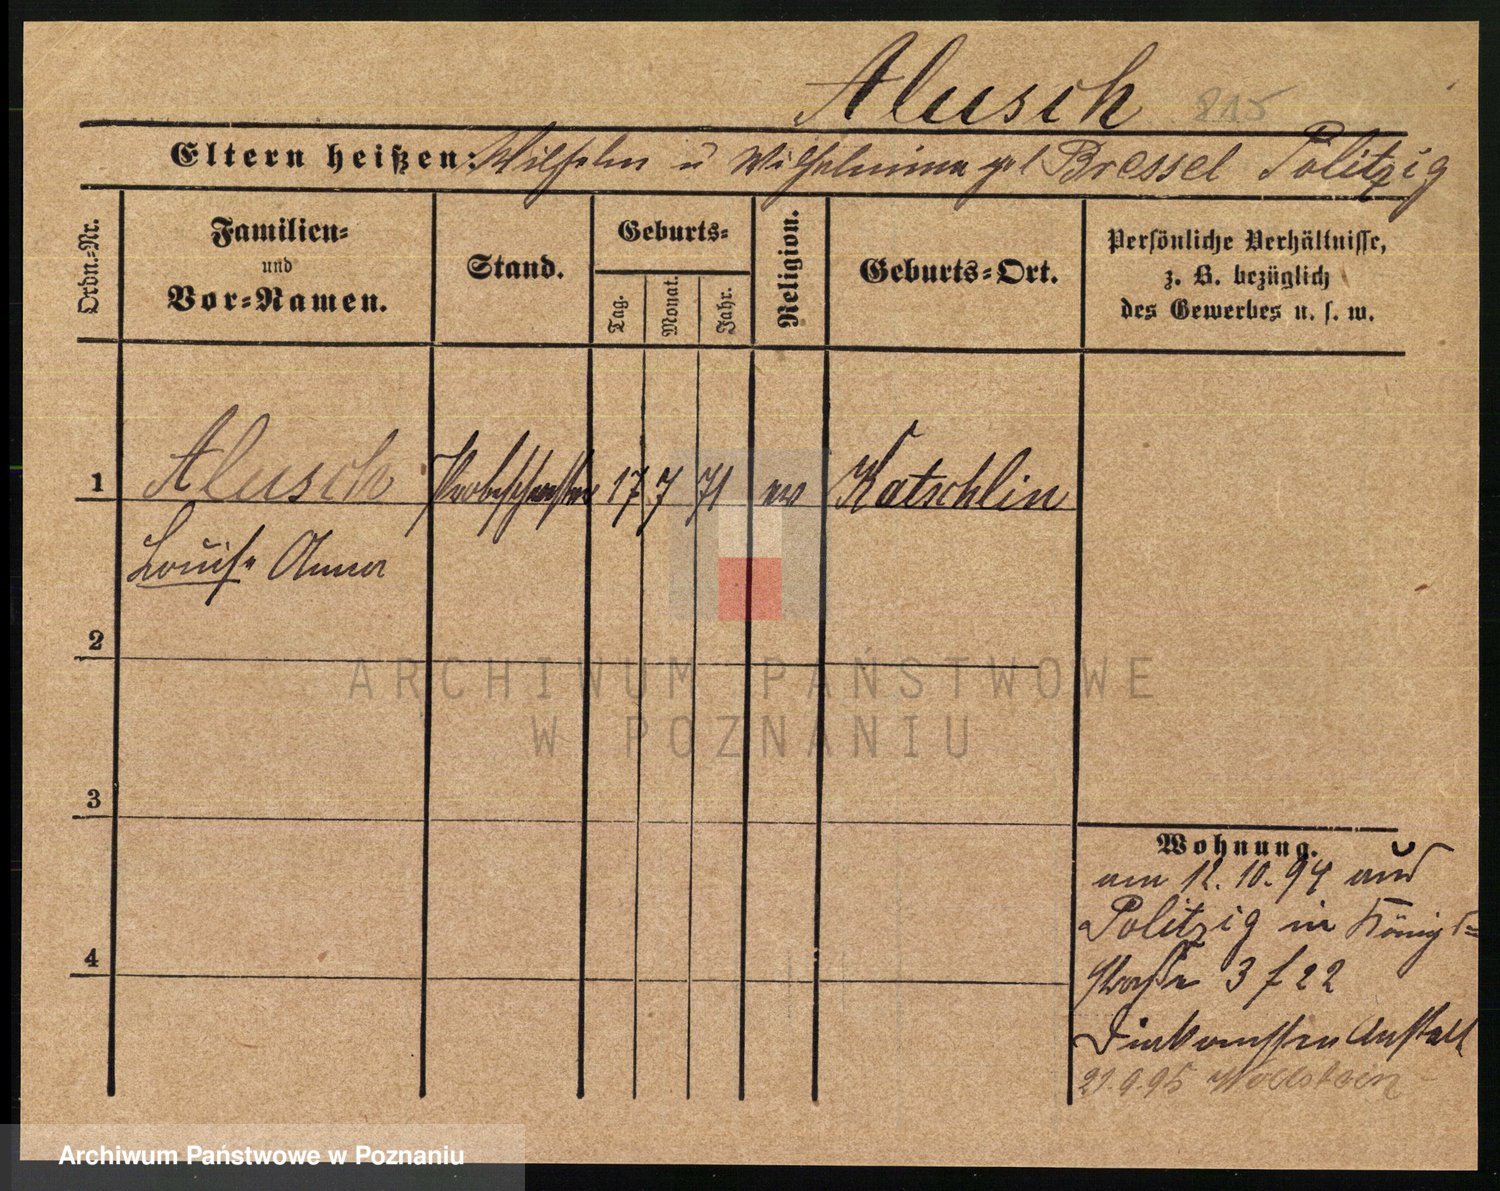 Alusch 815
Eltern heißen: Wilhelm u Wilhelmina geb Bressel Politzig
Ordn.-Nr.
Familien-
und
Vor-Namen.
Stand.
Geburts-
Tag.
Monat.
Jahr.
Religion.
Geburts-Ort.
Persönliche Verhältnisse,
z. B. bezüglich
des Gewerbes u. s. w.
1 Alusch Probeschwester 17 7 71 ev Katschlin
Louise Anna
2
3
4
Wohnung.
am 12.10.94 aus
Politzig in Königs-
straße 3 f 22
Diakonissen Anstalt
21.9.95 Wollstein
ARCHIWUM PAŃSTWOWE
W POZNANIU
Archiwum Państwowe w Poznaniu